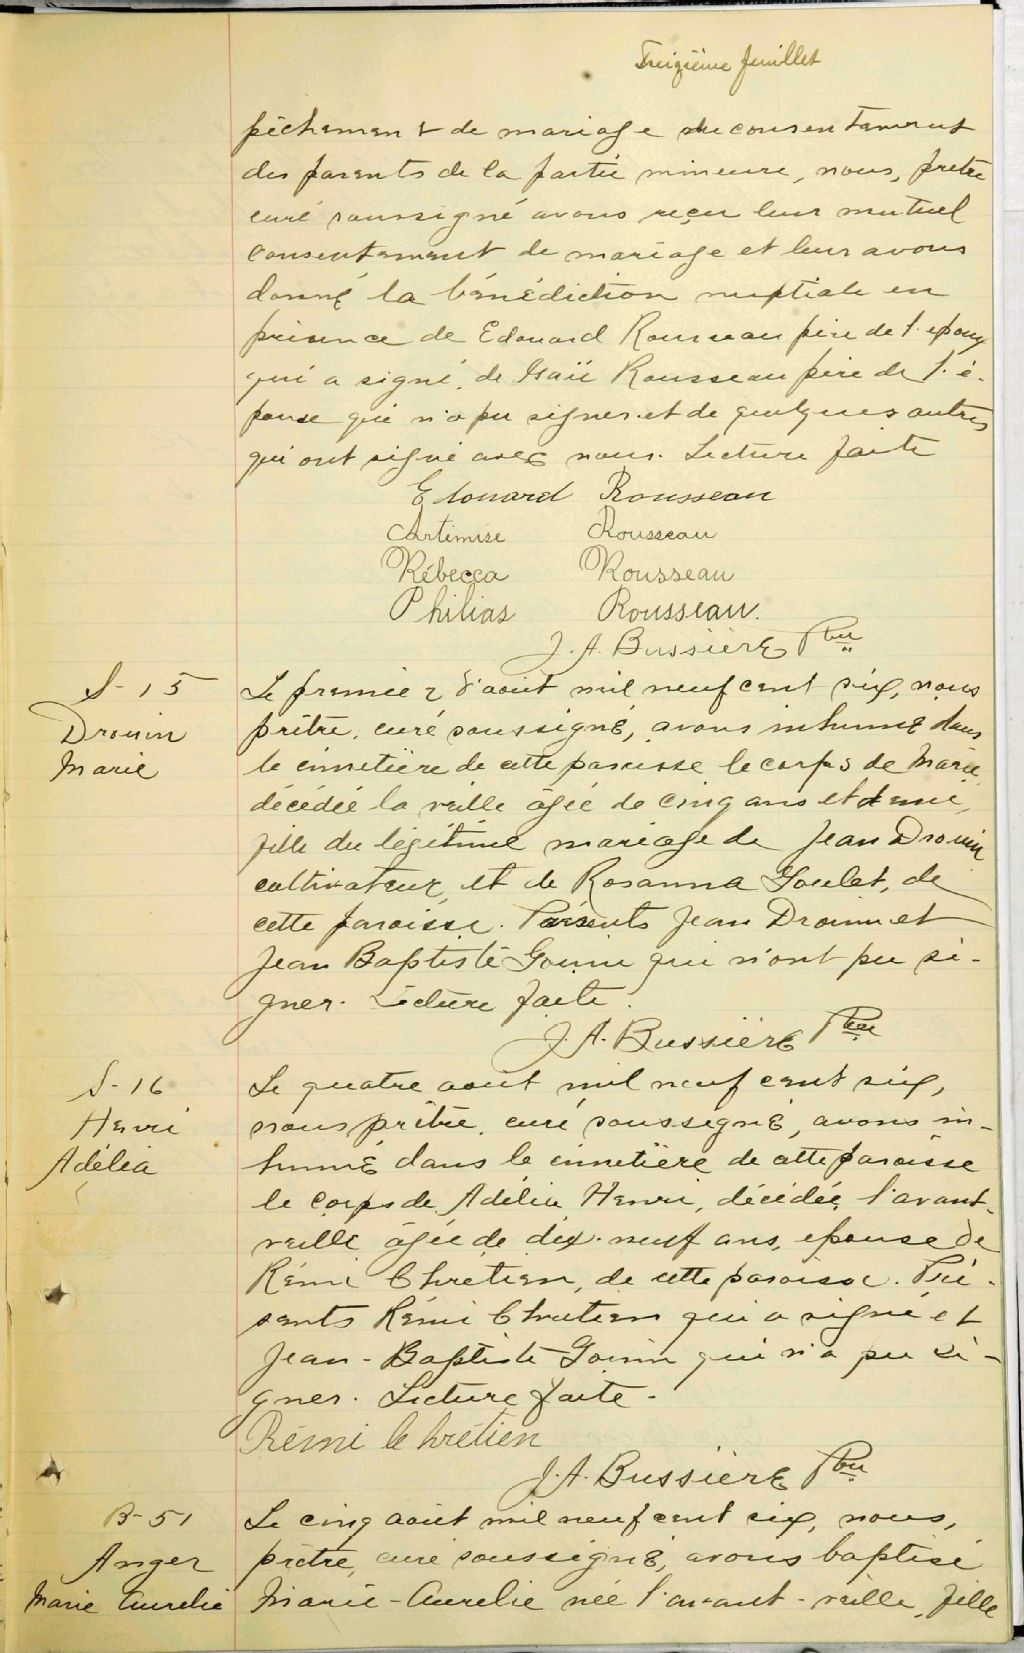 Treizième feuillet
pêchement de mariage du consentement
des parents de la partie mineure, nous, prêtre
curé soussigné avons reçu leur mutuel
consentement de mariage et leur avons
donné la bénédiction nuptiale en
présence de Edouard Rousseau père de l'époux
qui a signé, de Isaïe Rousseau père de l'é-
pouse qui n'a pu signer et de quelques autres
qui ont signé avec nous. Lecture faite
Edouard Rousseau
Artimise Rousseau
Rébecca Rousseau
Philias Rousseau.
J. A. Bussière Ptre
S-15
Drouin
Marie
Le premier d'août mil neuf cent six, nous
prêtre, curé soussigné, avons inhumé dans
le cimetière de cette paroisse le corps de Marie
décédée la veille âgée de cinq ans et demi,
fille du légitime mariage de Jean Drouin
cultivateur, et de Rosanna Goulet, de
cette paroisse. Présents Jean Drouin et
Jean Baptiste Gouin qui n'ont pu si-
gner. Lecture faite.
J. A. Bussière Ptre
S-16
Henri
Adélia
Le quatre août mil neuf cent six,
nous prêtre, curé soussigné, avons in-
humé dans le cimetière de cette paroisse
le corps de Adélia Henri, décédée l'avant-
veille âgée de dix-neuf ans, épouse de
Rémi Chretien, de cette paroisse. Pré-
sents Rémi Chretien qui a signé et
Jean-Baptiste Gouin qui n'a pu si-
gner. Lecture faite.
Rémi Chrétien
J. A. Bussière Ptre
B-51
Anger
Marie Aurelie
Le cinq août mil neuf cent six, nous,
prêtre, curé soussigné, avons baptisé
Marie-Aurelie née l'avant-veille, fille